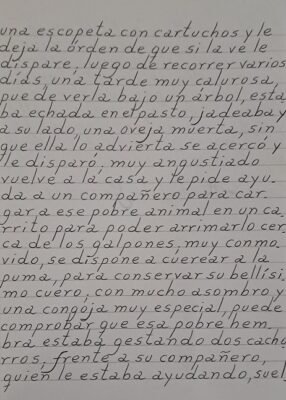 una escopeta con cartuchos y le
deja la órden de que si la ve le
dispare, luego de recorrer varios
días, una tarde muy calurosa,
puede verla bajo un árbol, esta
ba echada en el pasto, jadeaba y
a su lado, una oveja muerta, sin
que ella lo advierta se acercó y
le disparó. muy angustiado
vuelve a la casa y le pide ayu_
da a un compañero para car_
gar a ese pobre animal en un ca_
rrito para poder arrimarlo cer_
ca de los galpones, muy conmo_
vido, se dispone a cuerear a la
puma, para conservar su bellísi_
mo cuero, con mucho asombro, y
una congoja muy especial, puede
comprobar que esa pobre hem_
bra estaba gestando dos cacho_
rros, frente a su compañero,
quien le estaba ayudando, suel_